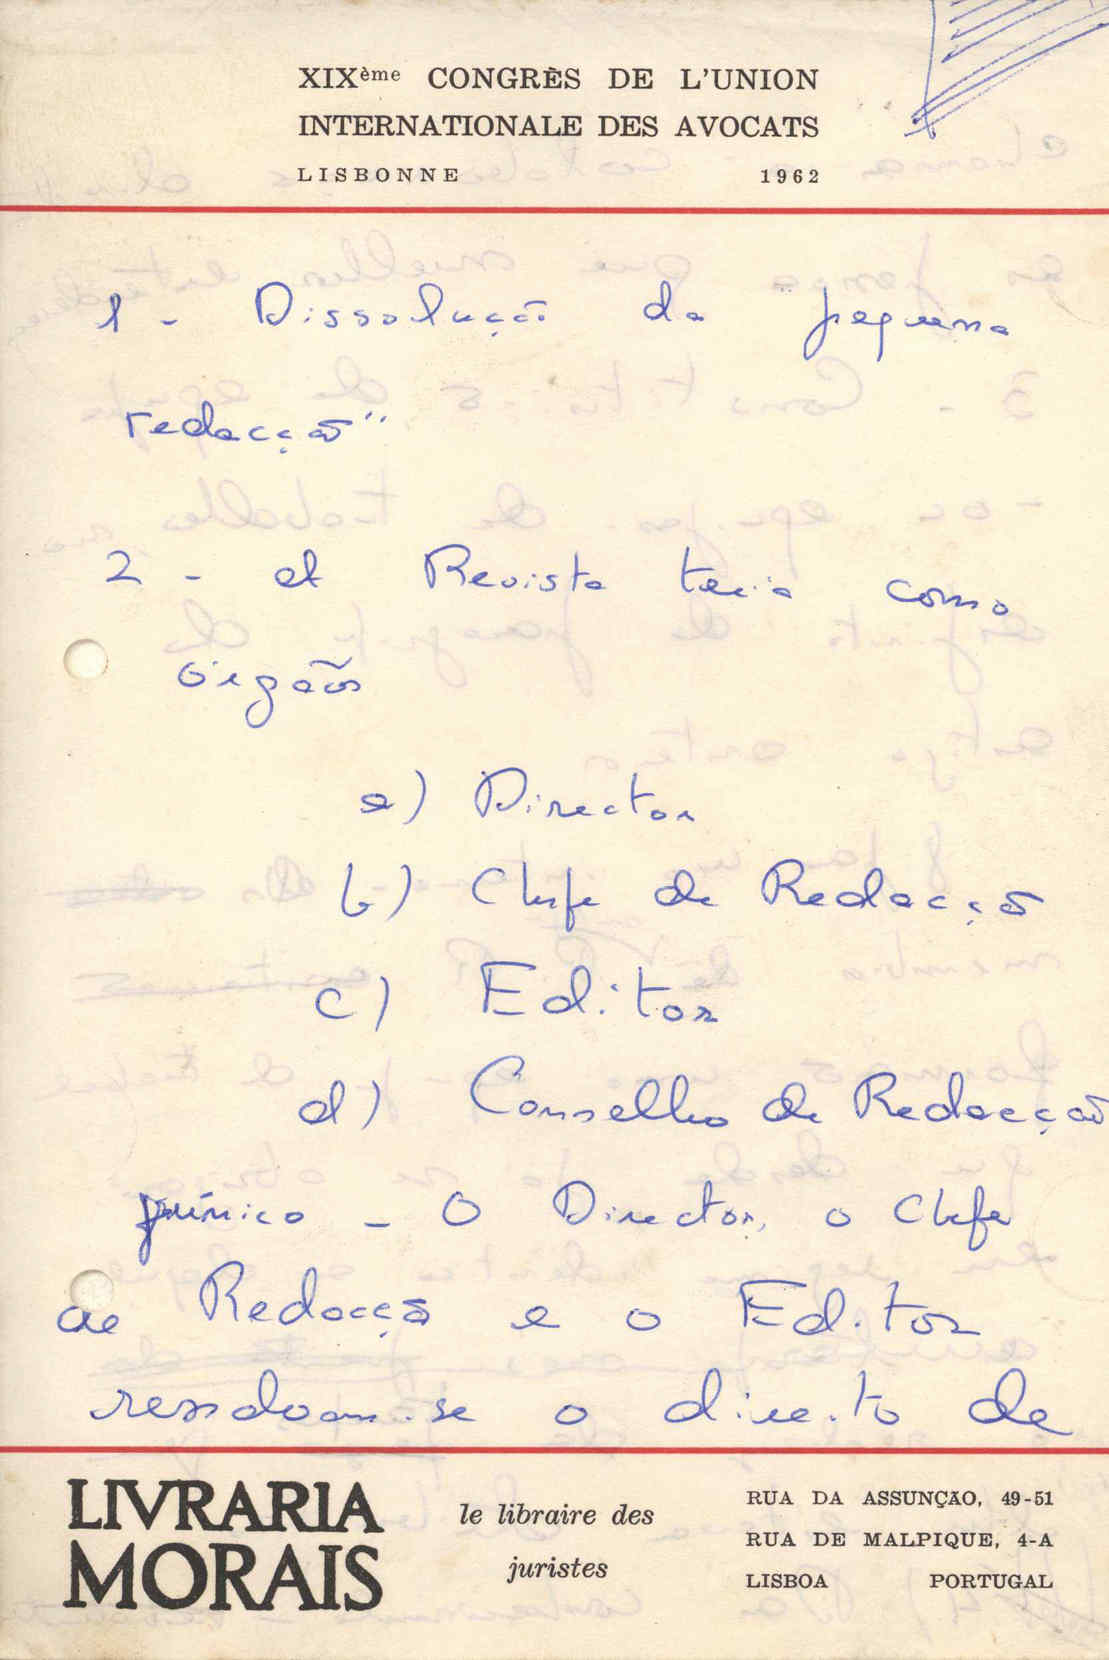 XIXème CONGRÈS DE L'UNION
INTERNATIONALE DES AVOCATS
LISBONNE 1962
1 - Dissolução da "pequena
redacção"
2 - A Revista teria como
orgãos
a) Director
b) Chefe de Redacção
c) Editor
d) Conselho de Redacção
§ único - O Director, o Chefe
de Redacção e o Editor
reservam-se o direito de
LIVRARIA
MORAIS
le libraire des
juristes
RUA DA ASSUNÇÃO, 49-51
RUA DE MALPIQUE, 4-A
LISBOA PORTUGAL